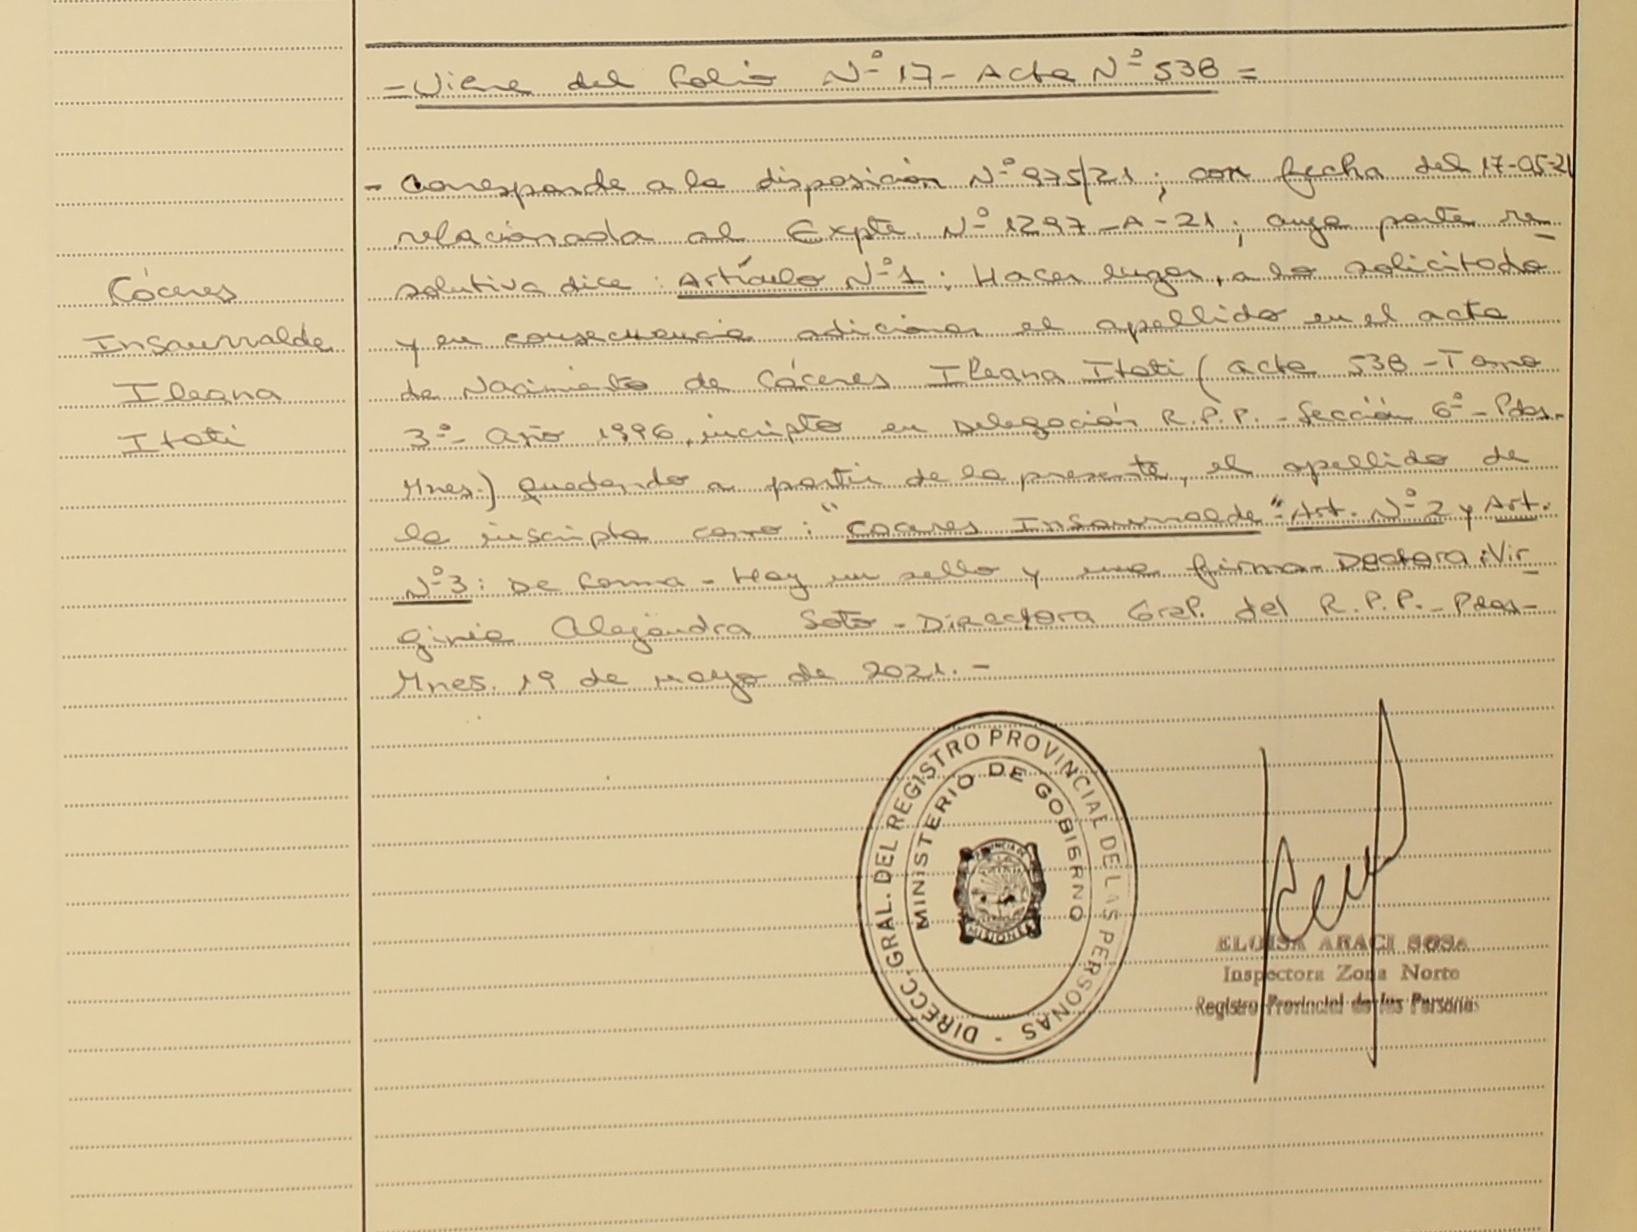 - Viene del Folio Nº 17 - Acta Nº 538 =
- Corresponde a la disposición Nº 975/21; con fecha del 17-05-21
relacionada al Expte. Nº 1297-A-21; cuya parte re-
solutiva dice: Artículo Nº 1: Hacer lugar, a lo solicitado
y en consecuencia adicionar el apellido en el acta
de Nacimiento de Cáceres Ileana Itatí (acta 538 - Tomo
3º - Año 1996, incripto en Delegación R.P.P. - Sección 6º - Pdas.
Mnes.) Quedando a partir de la presente, el apellido de
la inscripta como: "Cáceres Insaurralde" - Art. Nº 2 y Art.
Nº 3: De Forma - Hay un sello y una firma - Doctora: Vir-
ginia Alejandra Soto - Directora Gral. del R.P.P. - Pdas -
Mnes. 19 de mayo de 2021. -
Cáceres
Insaurralde
Ileana
Itatí
DIRECC. GRAL. DEL REGISTRO PROVINCIAL DE LAS PERSONAS -
MINISTERIO DE GOBIERNO
PROVINCIA DE
MISIONES
ELOISA ARACI SOSA
Inspectora Zona Norte
Registro Provincial de las Personas